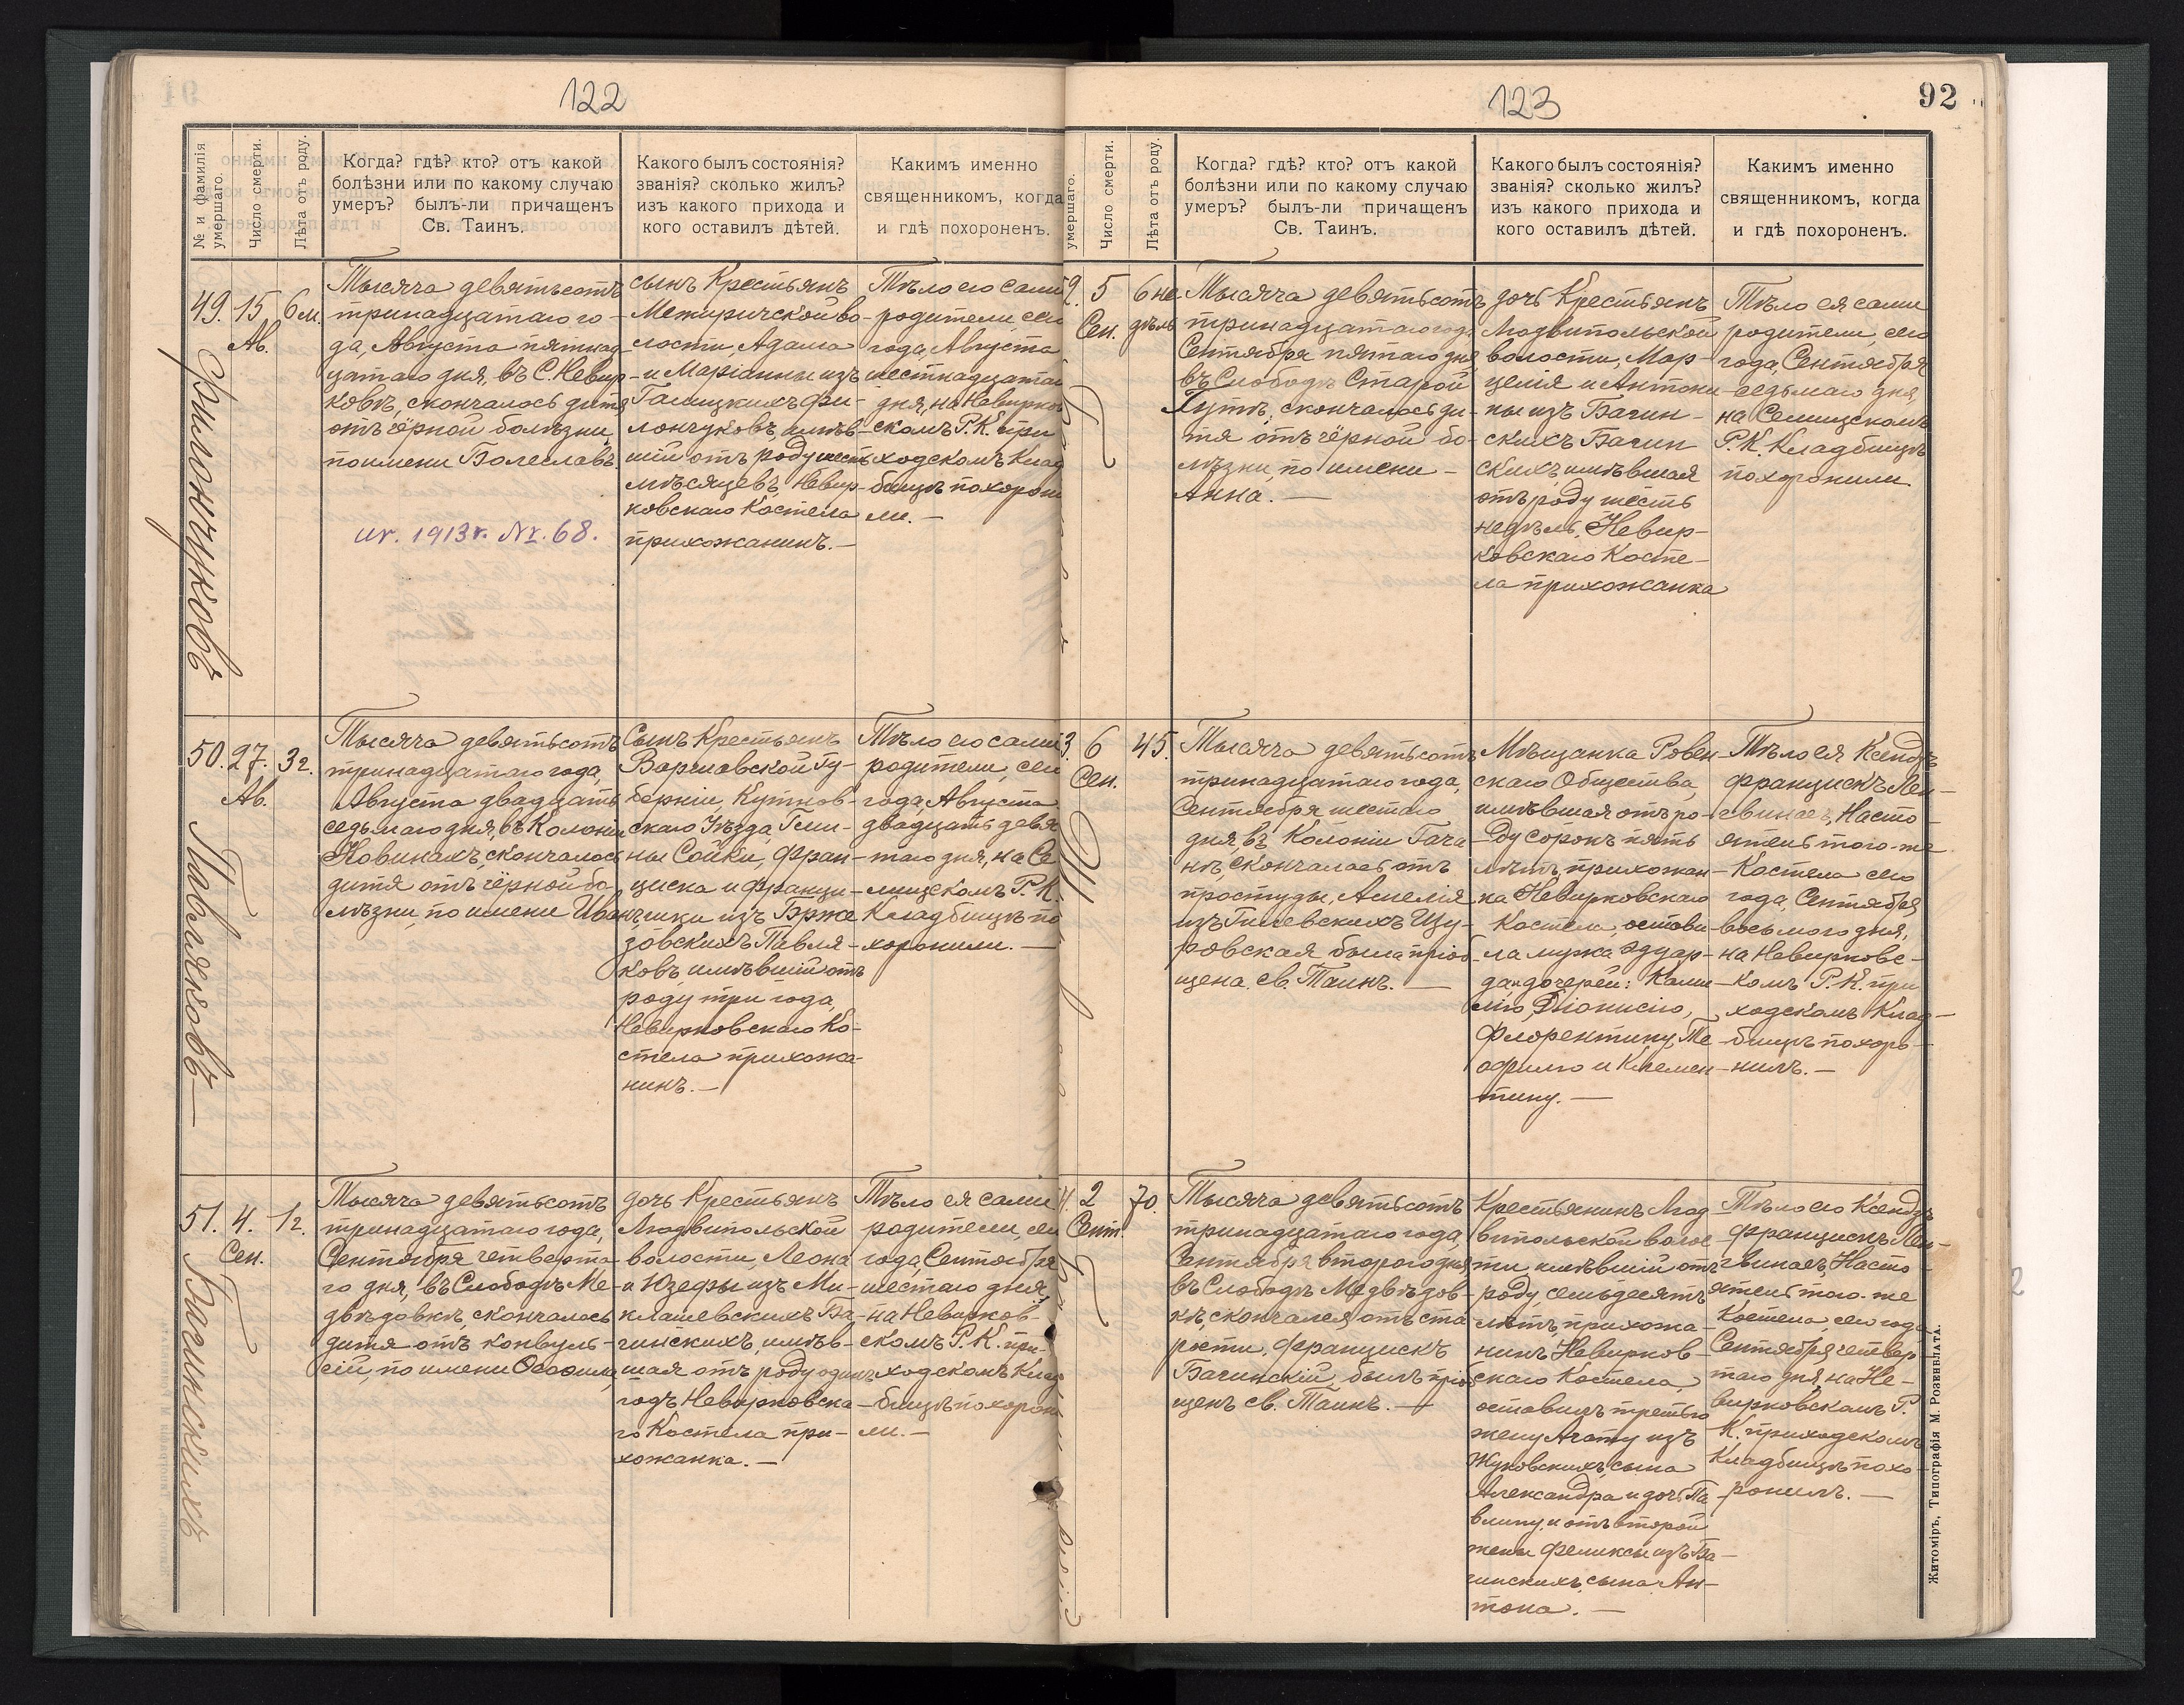 122
№ и фамилія умершаго.
Число смерти.
Лѣта отъ роду.
Когда? гдѣ? кто? отъ какой
болѣзни или по какому случаю
умеръ? былъ-ли причащенъ
Св. Таинъ.
Какого былъ состоянія?
званія? сколько жилъ?
изъ какого прихода и
кого оставилъ дѣтей.
Какимъ именно
священникомъ, когда
и гдѣ похороненъ.
49.
Филончуковъ
15
Ав.
6 м.
Тысяча девятьсотъ
тринадцатаго го-
да, Августа пятнад-
цатаго дня, въ С. Невир-
ковѣ, скончалось дитя
отъ чёрной болѣзни,
по имени Болеславъ.
ur. 1913 r. Nr. 68.
сынъ Крестьянъ
Межиричской во-
лости, Адама
и Маріанны изъ
Галицкихъ Фи-
лончуковъ, имѣв-
шій отъ роду шесть
мѣсяцевъ, Невир-
ковскаго Костела
прихожанинъ.—
Тѣло его сами
родители, сего
года, Августа
шестнадцатаго
дня, на Невирков
скомъ Р. К. при
ходскомъ Клад
бищѣ похорон
ли.—
50.
Павляковъ—
27.
Ав.
3 г.
Тысяча девятьсотъ
тринадцатаго года,
Августа двадцать
седьмаго дня, въ Колоніи
Новинахъ, скончалось
дитя отъ чёрной бо-
лѣзни, по имени Иванъ
Сынъ Крестьянъ
Варшавской Гу-
берніи, Кутнов-
скаго Уѣзда, Гми-
ны Сойки, Фран-
циска и Франци-
шки изъ Брже
зовскихъ Павля-
ковъ, имѣвшій отъ
роду три года,
Невирковскаго Ко-
стела прихожа-
нинъ.—
Тѣло его сами
родители, сего
года, Августа
двадцать девя
таго дня, на Се
лищскомъ Р. К.
Кладбищѣ по
хоронили.—
51.
Багинскихъ
4.
Сен.
1 г.
Тысяча девятьсотъ
тринадцатаго года,
Сентября четверта-
го дня, въ Слободѣ Ме-
двѣдовкѣ, скончалось
дитя отъ конвуль-
сій, по имени
дочь Крестьянъ
Людвипольской
волости, Леона
и Юзефы изъ Ми-
клашевскихъ Ба-
гинскихъ, имѣв-
шая отъ роду одинъ
годъ, Невирковска-
го Костела при-
хожанка.—
Тѣло ея сами
родители, сего
года, Сентября
шестаго дня,
на Невирков-
скомъ Р. К. при-
ходскомъ Клад
бищѣ похорони
ли.—
123
92
умершаго.
Число смерти.
Лѣта отъ роду.
Когда? гдѣ? кто? отъ какой
болѣзни или по какому случаю
умеръ? былъ-ли причащенъ
Св. Таинъ.
Какого былъ состоянія?
званія? сколько жилъ?
изъ какого прихода и
кого оставилъ дѣтей.
Какимъ именно
священникомъ, когда
и гдѣ похороненъ.
2.
5
Сен.
6 не
дѣль
Тысяча девятьсотъ
тринадцатаго года,
Сентября пятаго дня,
въ Слободѣ Старой
Гутѣ, скончалось ди-
тя отъ чёрной бо-
лѣзни, по имени —
Анна.—
дочь Крестьянъ
Людвипольской
волости, Мар-
целія и Антони-
ны изъ Багин-
скихъ Багин
скихъ, имѣвшая
отъ роду шесть
недѣль, Невир-
ковскаго Косте-
ла прихожанка
Тѣло ея сами
родители, сего
года, Сентября
седьмаго дня,
на Селищскомъ
Р. К. Кладбищѣ
похоронили
3.
6
Сен.
45.
Тысяча девятьсотъ
тринадцатаго года,
Сентября шестаго
дня, въ Колоніи Гача
нѣ, скончалась отъ
простуды, Амелія
изъ Гилевскихъ Щу-
ровская была пріоб-
щена св. Таинъ.—
Мѣщанка Ровен
скаго Общества,
имѣвшая отъ ро-
ду сорокъ пять
лѣтъ, прихожан-
ка Невирковскаго
Костела, остави-
ла мужа Эдуар-
да и дочерей: Ками-
лію Діонисію,
Флорентину, Те-
офилю и Клемен-
тину.—
Тѣло ея Ксендзъ
Францискъ Лен-
Насто-
ятель того-же
Костела сего
года, Сентября
восьмого дня,
на Невирковс-
комъ Р. К. при
ходскомъ Клад-
бищѣ похоро-
нилъ.—
4.
2
Сент.
70.
Тысяча девятьсотъ
тринадцатаго года,
Сентября второго дня
въ Слободѣ Медвѣдов-
кѣ, скончался отъ ста
рости, Францискъ
Багинскій, былъ пріоб
щенъ св. Таинъ.—
Крестьянинъ Люд
випольской волос
ти имѣвшій отъ
роду, семьдесятъ
лѣтъ, прихожа-
нинъ Невирков-
скаго Костела,
оставилъ третью
жену Агату изъ
Жуковскихъ, сына
Александра и дочь Па
влину, и отъ второй
жены Феликсы изъ Ба-
гинскихъ, сына Ан-
тона.—
Тѣло его Ксендзъ
Францискъ Лен-
Насто-
ятель того-же
Костела, сего года
Сентября четвер-
таго дня, на Не-
вирковскомъ Р.
К. приходскомъ
Кладбищѣ похо-
ронилъ.—
Житоміръ, Типографія М. Розенблата.